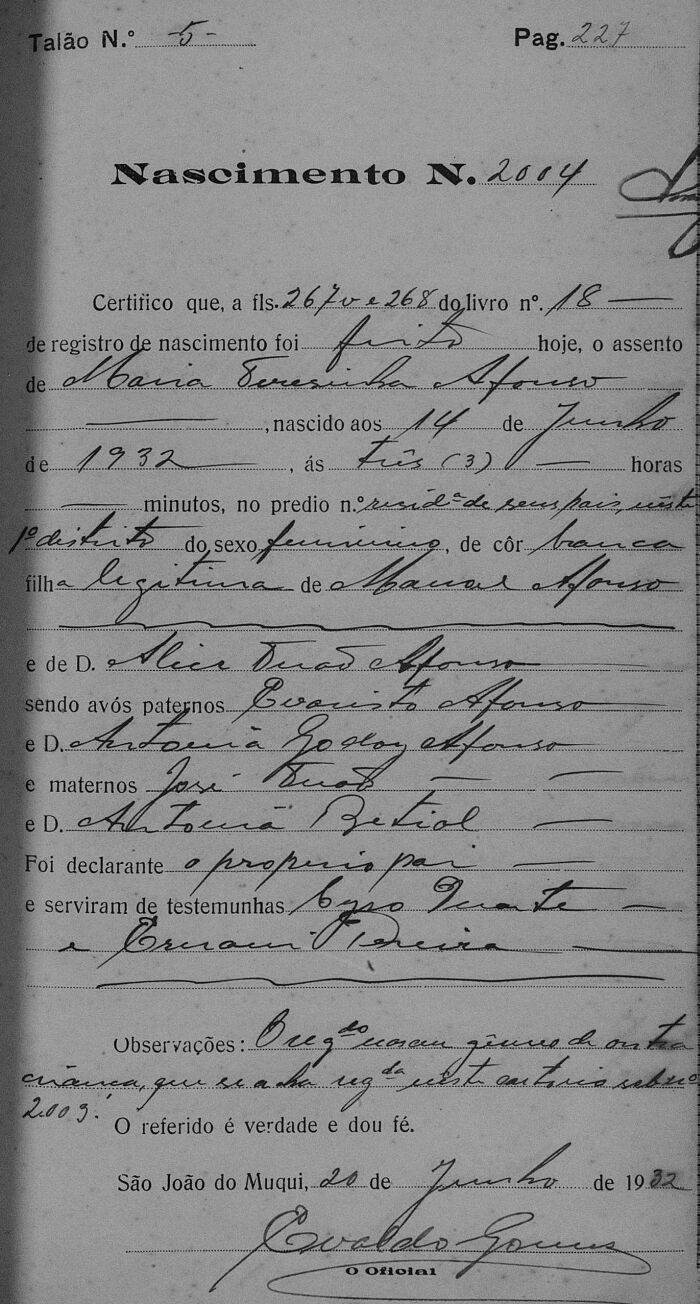 Talão N.º -5-
Pag. 227
Nascimento N. 2004
Certifico que, a fls. 267v e 268 do livro nº. 18 —
de registro de nascimento foi feito hoje, o assento
de Maria Teresinha Afonso
—, nascido aos 14 de Junho
de 1932 —, ás três (3) — horas
— minutos, no predio n.º resid.ª de seus pais, neste
1º distrito do sexo feminino, de côr branca
filha legitima de Manoel Afonso
e de D. Alice Afonso
sendo avós paternos Evaristo Afonso
e D. Antonia Godoy Afonso
e maternos José — —
e D. Antonia Betiol —
Foi declarante o proprio pai —
e serviram de testemunhas Cyro Duarte —
e Ernani Pereira —
Observações: O reg.do nasceu gêmeo de outra
criança, que se acha reg.da neste cartorio sob nº
2.003.
O referido é verdade e dou fé.
São João do Muqui, 20 de Junho de 1932
Evaldo Gomes
O Oficial